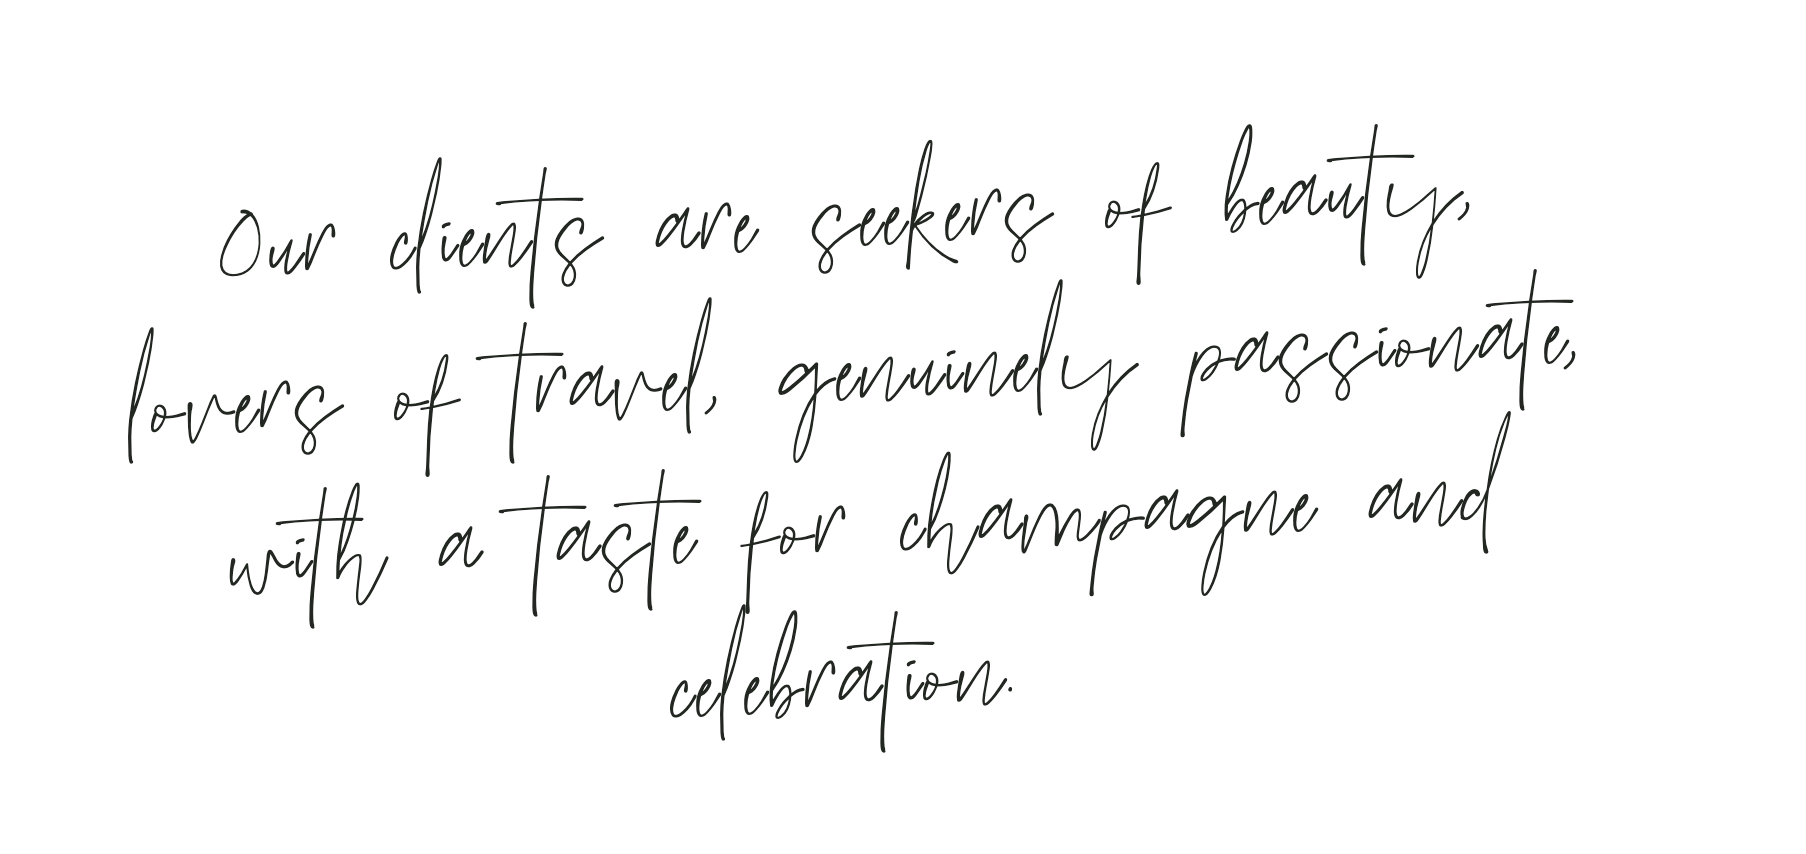 Our clients are seekers of beauty,
lovers of travel, genuinely passionate,
with a taste for champagne and
celebration.